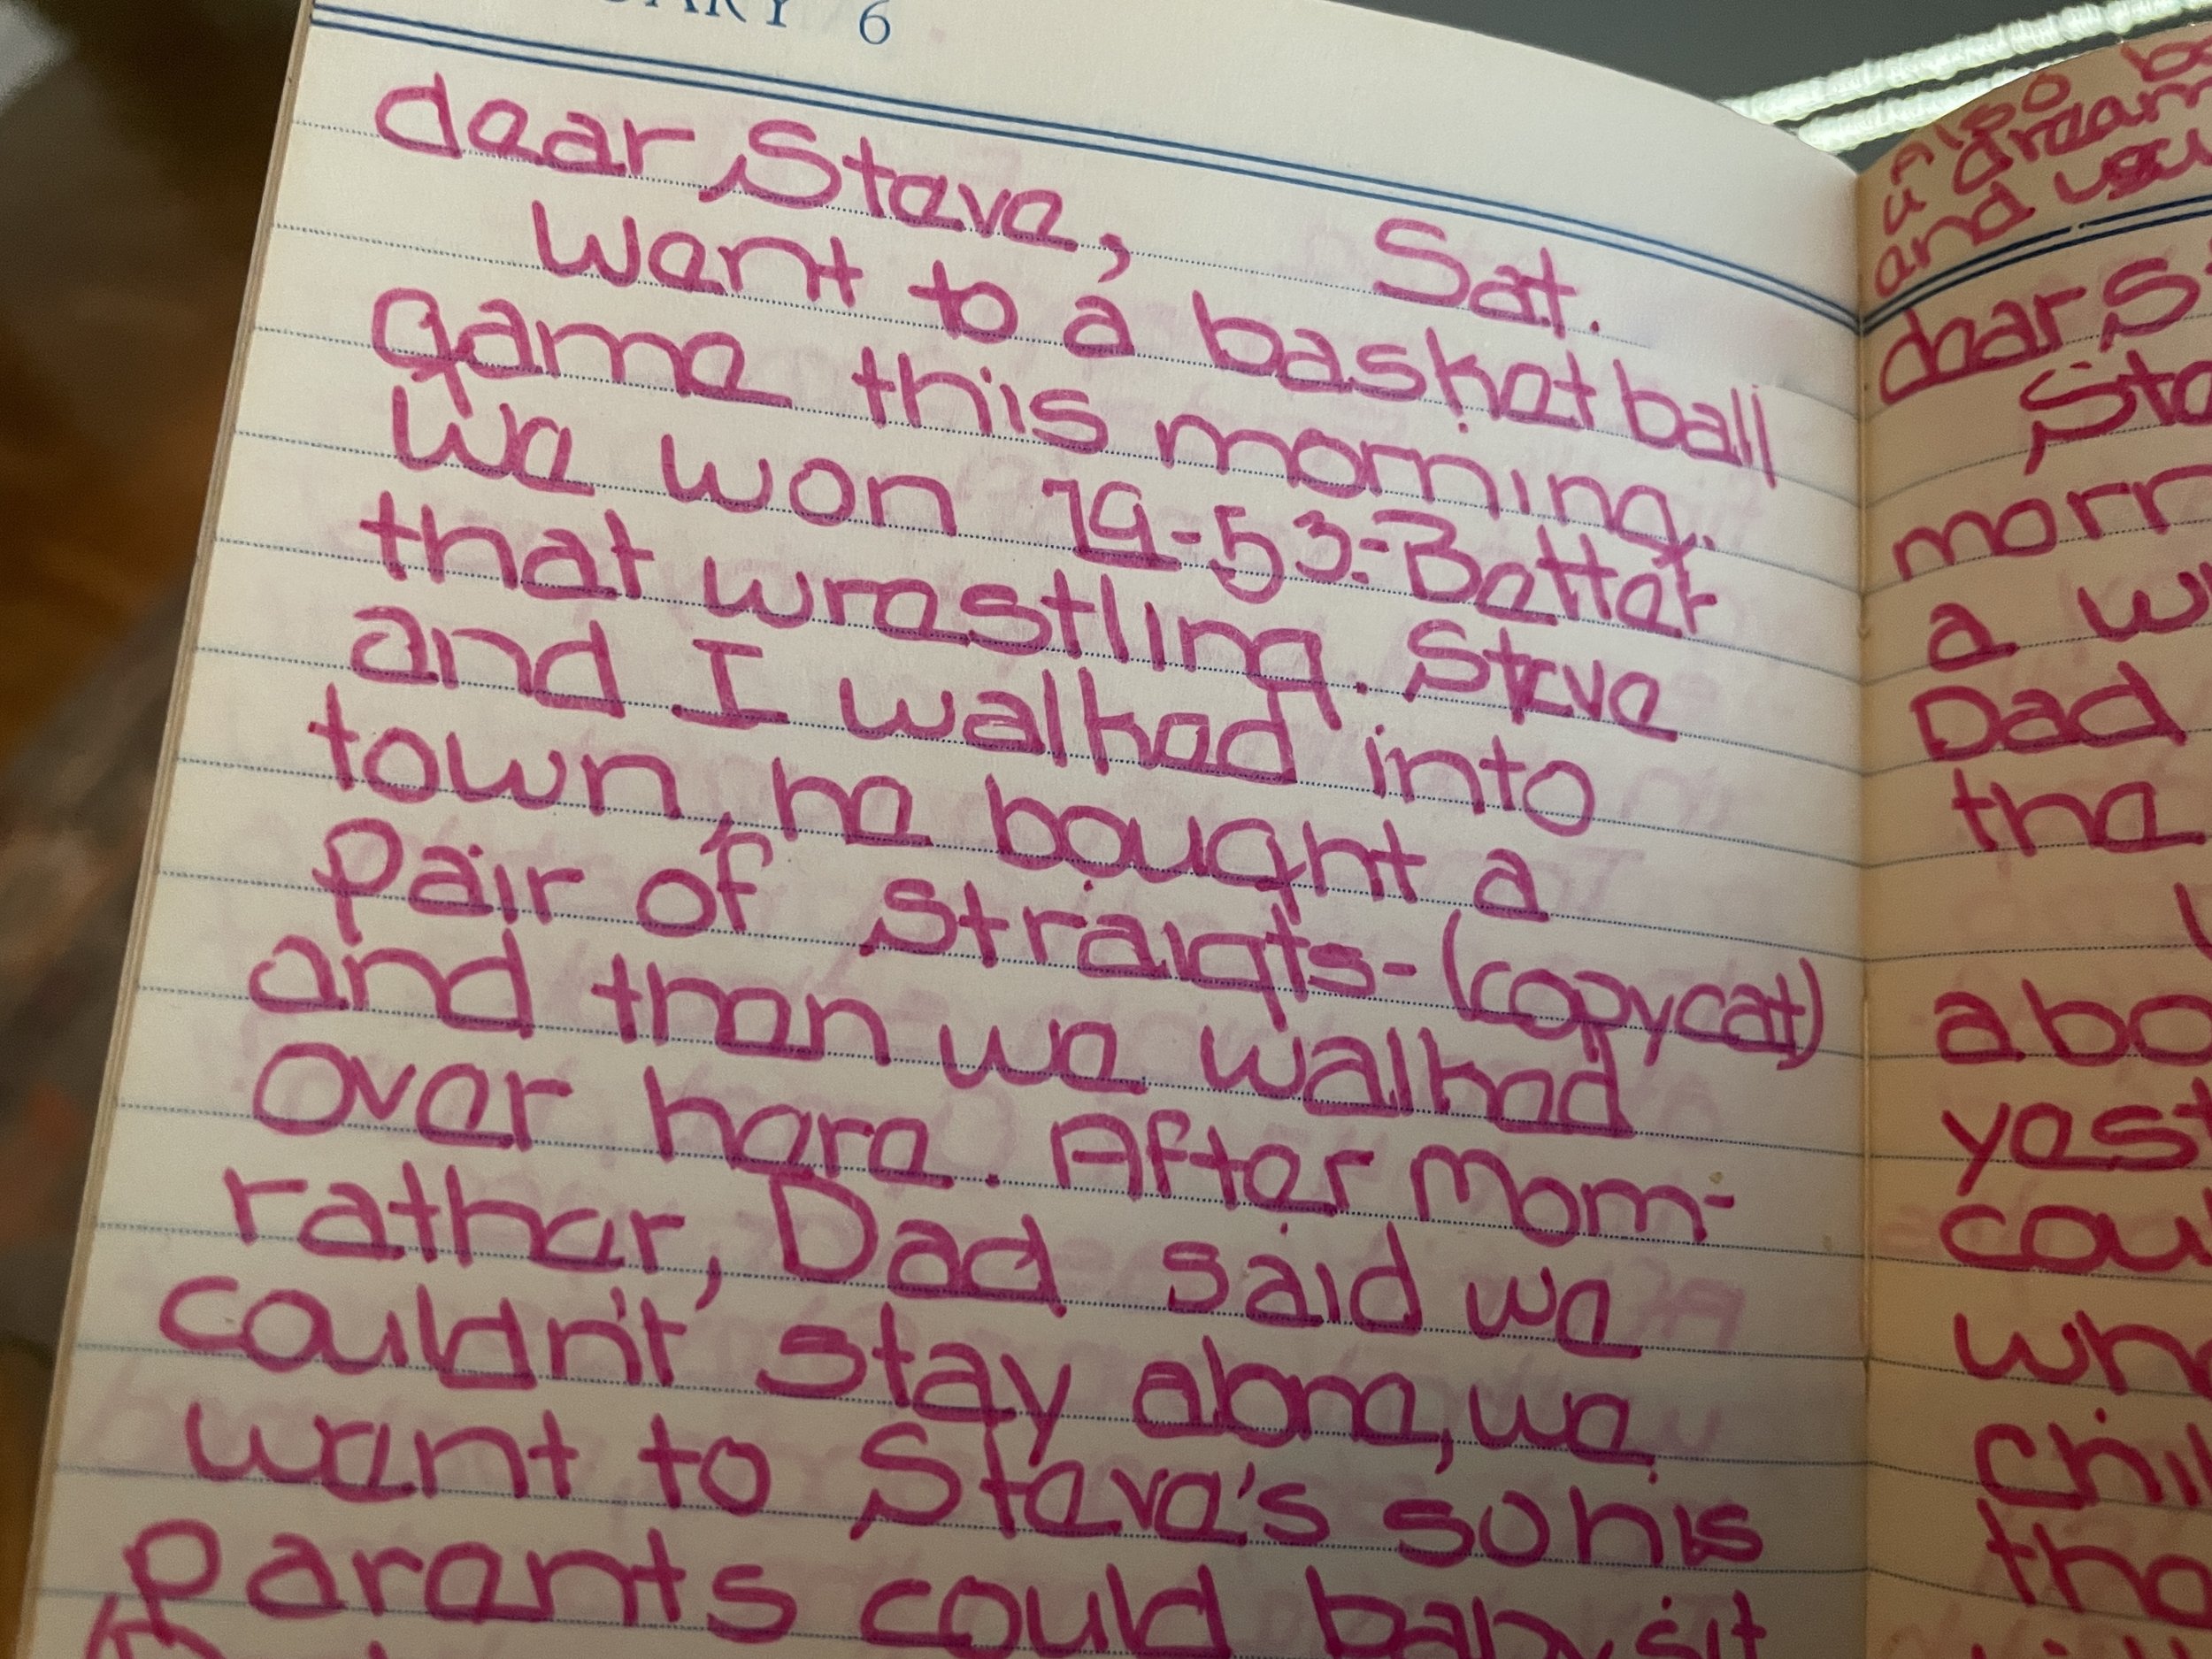 ARY 6
dear Steve,
Sat.
Went to a basketball
game this morning.
We won 79-53-Better
that wrestling. Steve
and I walked into
town, he bought a
pair of straigts-(copycat)
and then we walked
over here. After Mom-
rather, Dad said we
couldn't stay alone, we
went to Steve's so his
parents could babysit
Also
a dream
and
dear S
morn
a w
Dad
the
abo
yest
cou
wh
chil